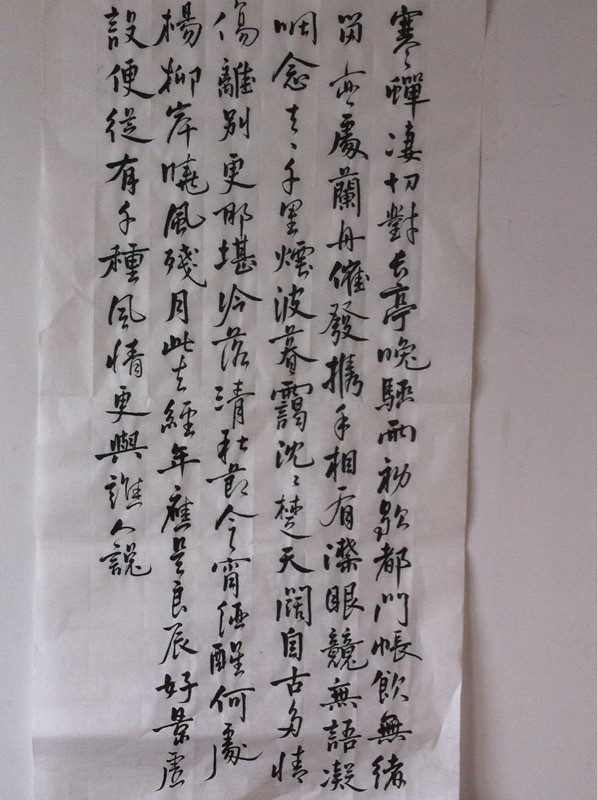 寒蟬凄切對長亭晚驟雨初歇都門帳飲無緒
留恋處蘭舟催發携手相看淚眼競無語凝
咽念去々千里煙波暮靄沈々楚天闊自古多情
傷離別更那堪冷落清秋節今宵酒醒何處
楊柳岸曉風殘月此去經年應是良辰好景虛
設便從有千種風情更與誰人說